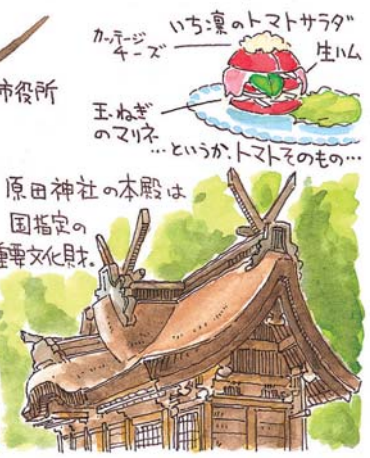 いち凛のトマトサラダ
カッテージ
チーズ
生ハム
市役所
玉ねぎ
のマリネ
…というか、トマトそのもの…
原田神社の本殿は
国指定の
重要文化財.